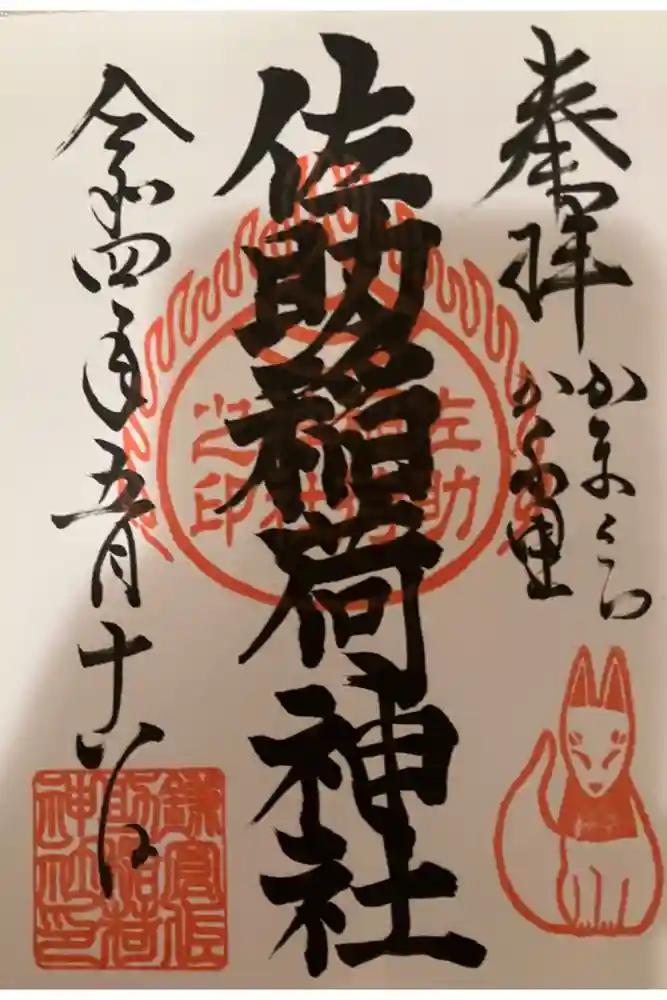 奉拝
かまくら
かくれ里
佐助稲荷神社
佐助
稲荷
神社
之印
令和四年五月十八日
鎌倉佐
助稲荷
神社印